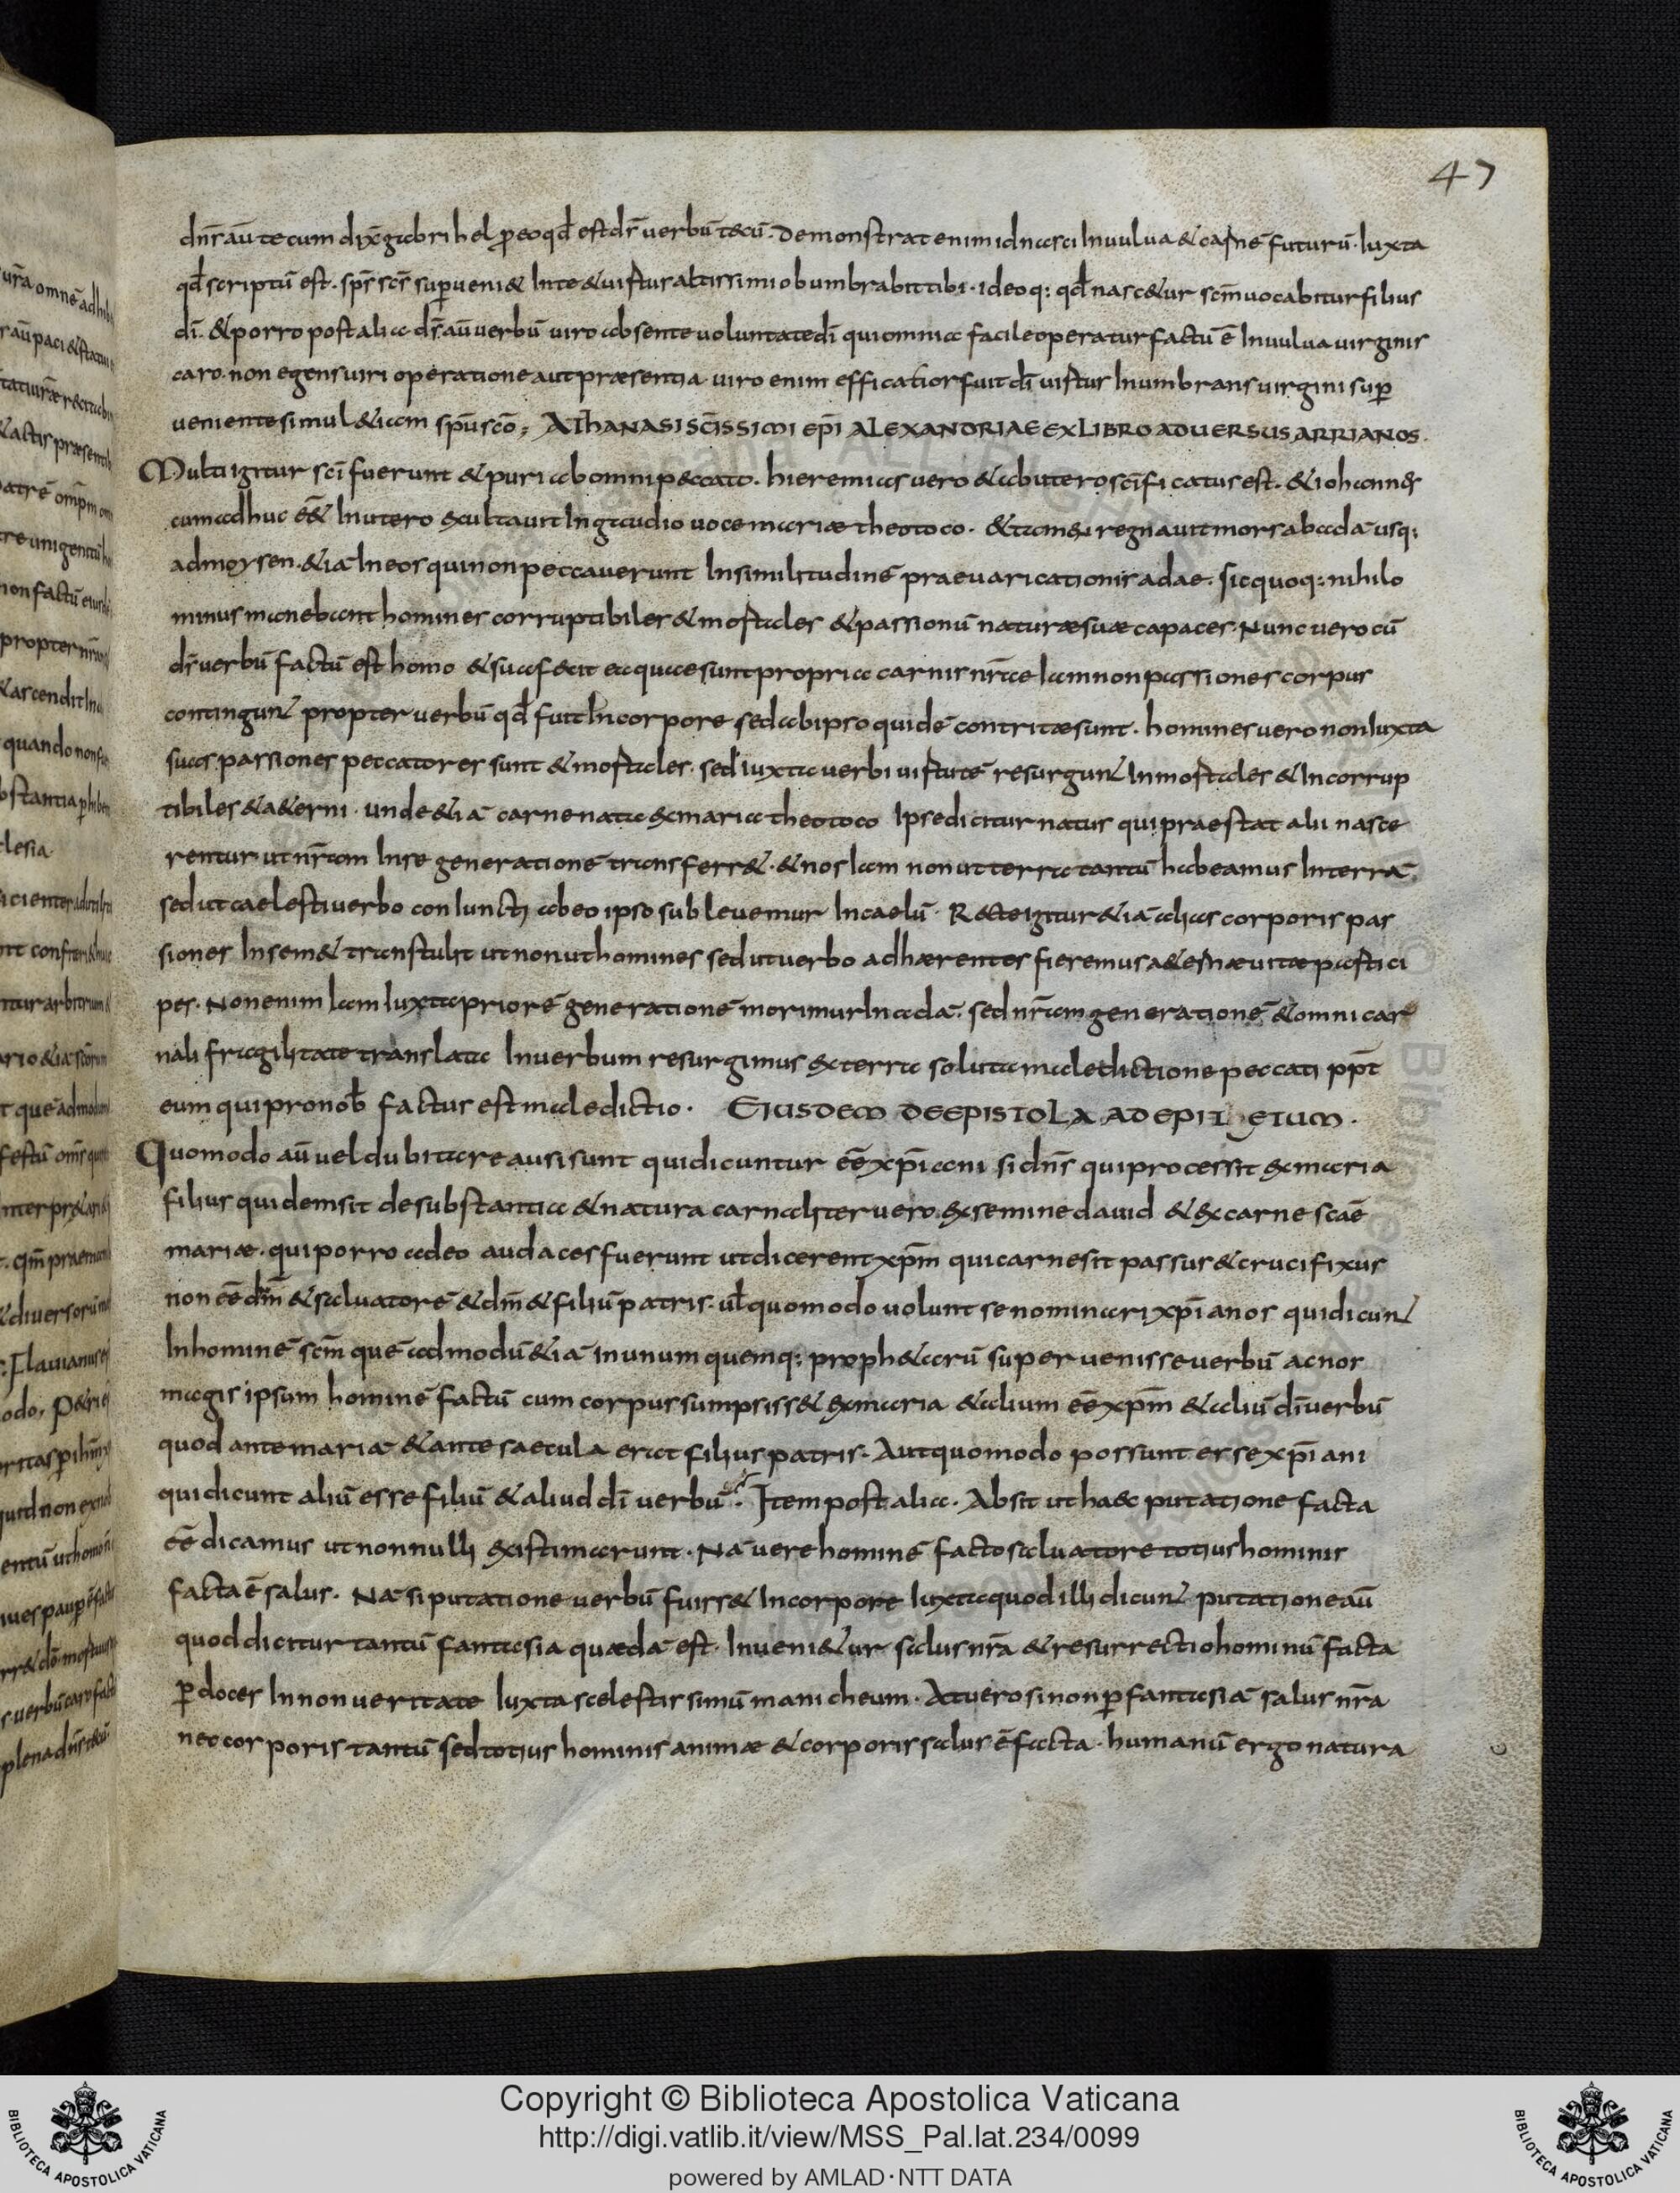 47
dn̄s aū tecum dix̄ gabrihel p̱ eo qd̄ est dr̄ uerbū tecū. Demonstrat enim id nasci In uulua & carnē futurū. Iuxta
qd̄ scriptū est. sps̄ scs̄ superueni& In te & uirtus altissimi obumbrabit tibi. ideoq: qd̄ nasc&ur scm̄ uocabitur filius
dī. & porro post alia ds̄ aū uerbū uiro absente uoluntate dī qui omnia facile operatur factū ē In uulua uirginis
caro. non egens uiri operatione aut præsentia. uiro enim efficatior fuit dī uirtus Inumbrans uirgini sup̱
uenientes simul & iam spū scō; AThANASI SC̄ISSIMI EPĪ ALEXANDRIAE EX LIBRO ADUERSUS ARRIANOS.
Multi igitur scī fuerunt & puri ab omni peccato. hieremias uero & ab utero scīficatus est. & iohannes
cum adhuc eē& In utero exultauit In gaudio uoce mariæ theotoco. & tam&si regnauit mors ab adā usq:
ad moysen. &iā In eos qui non peccauerunt In similitudinē praeuaricationis adae. sic quoq: nihilo
minus manebant homines corruptibiles & mortales & passionū naturæ suæ capaces. Nunc uero cū
ds̄ uerbū factū est homo & sua fecit ea quae sunt propria carnis nr̄ae Iam non passiones corpus
contingunt propter uerbū qd̄ fuit In corpore sed ab ipso quidē contritæ sunt. homines uero non Iuxta
suas passiones peccatores sunt & mortales. sed iuxta uerbi uirtutē resurgunt Inmortales & Incorrup
tibiles & a&erni. unde &iā carne nata ex maria theotoco Ipse dicitur natus qui praestat alii nasce
rentur ut nr̄am In se generationē transferr&. & nos Iam non ut terra tantū habeamus In terrā.
sed ut caelesti uerbo conIuncti ab eo ipso subleuemur In caelū. Recte igitur &iā alias corporis pas
siones In sem& transtulit ut non ut homines sed ut uerbo adhærentes fieremus a&ernæ uitæ partici
pes. Non enim Iam Iuxta priorē generationē morimur In adā. sed nr̄am generationē & omni car
nali fragilitate translata In uerbum resurgimus ex terra soluta maledictione peccati pp̄t
eum qui pro nob̄ factus est maledictio. EIUSDEM DE EPISTOLA AD EPI T ETUM.
Quomodo aū uel dubitare ausi sunt qui dicuntur eē xp̄iani si dn̄s qui processit ex maria
filius quidem sit de substantia & natura carnaliter uero ex semine dauid & ex carne scāe
mariæ. qui porro adeo audaces fuerunt ut dicerent xp̄m qui carne sit passus & crucifixus
non eē dm̄ & saluatorē & dm̄ & filiū patris. ul̄ quomodo uolunt se nominari xp̄ianos qui dicunt
In hominē scm̄ quē admodū &iā in unum quemq: proph&arū superuenisse uerbū ac nos
magis ipsum hominē factū cum corpus sumpsiss& ex maria & alium eē xp̄m & aliū dī uerbū
quod ante mariā & ante saecula erat filius patris. Aut quomodo possunt esse xp̄iani
qui dicunt aliū esse filiū & aliud dī uerbū. Item post alia. Absit ut haec putatione facta
eē dicamus ut nonnulli existimarunt. Nā uere hominē facto saluatore totius hominis
facta ē salus. Nā si putatione uerbū fuiss& In corpore Iuxta quod illi dicunt putatione aū
quod dicitur tantū fantasia quædā est. Inueni&ur salus nr̄a & resurrectio hominū facta
p̱ doces In non ueritate Iuxta scelestissimū manicheum. At uero si non p̱ fantasiā salus nr̄a
nec corporis tantū sed totius hominis animæ & corporis salus ē facta. humanū ergo natura
Copyright © Biblioteca Apostolica Vaticana
http://digi.vatlib.it/view/MSS_Pal.lat.234/0099
powered by AMLAD·NTT DATA
BIBLIOTECA APOSTOLICA VATICANA
BIBLIOTECA APOSTOLICA VATICANA